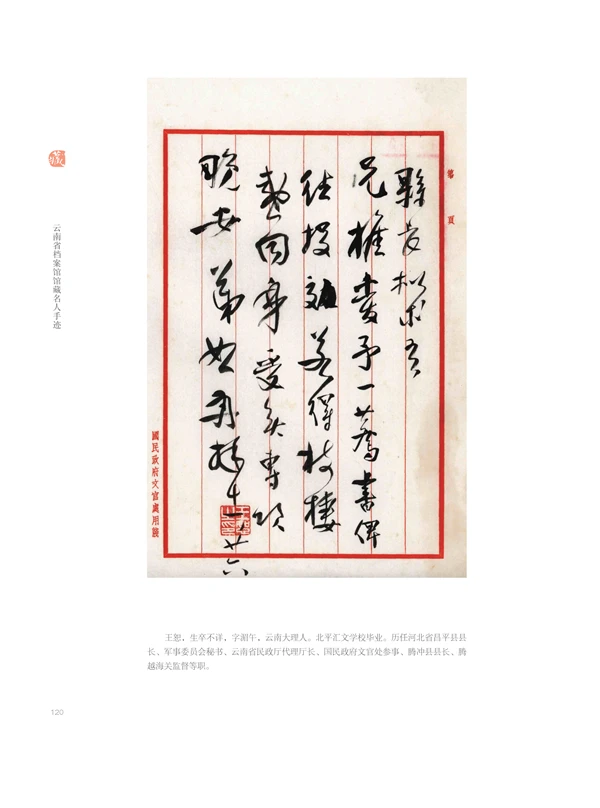 第 頁
縣長拟求吾
兄推愛予一薦書俾
往投効若得枝棲
感同身受矣專頌
晚安 弟恕再拜 十一、廿六
國民政府文官處用箋
云南省档案馆馆藏名人手迹
王恕，生卒不详，字午，云南大理人。北平汇文学校毕业。历任河北省昌平县县
长、军事委员会秘书、云南省民政厅代理厅长、国民政府文官处参事、腾冲县县长、腾
越海关监督等职。
120